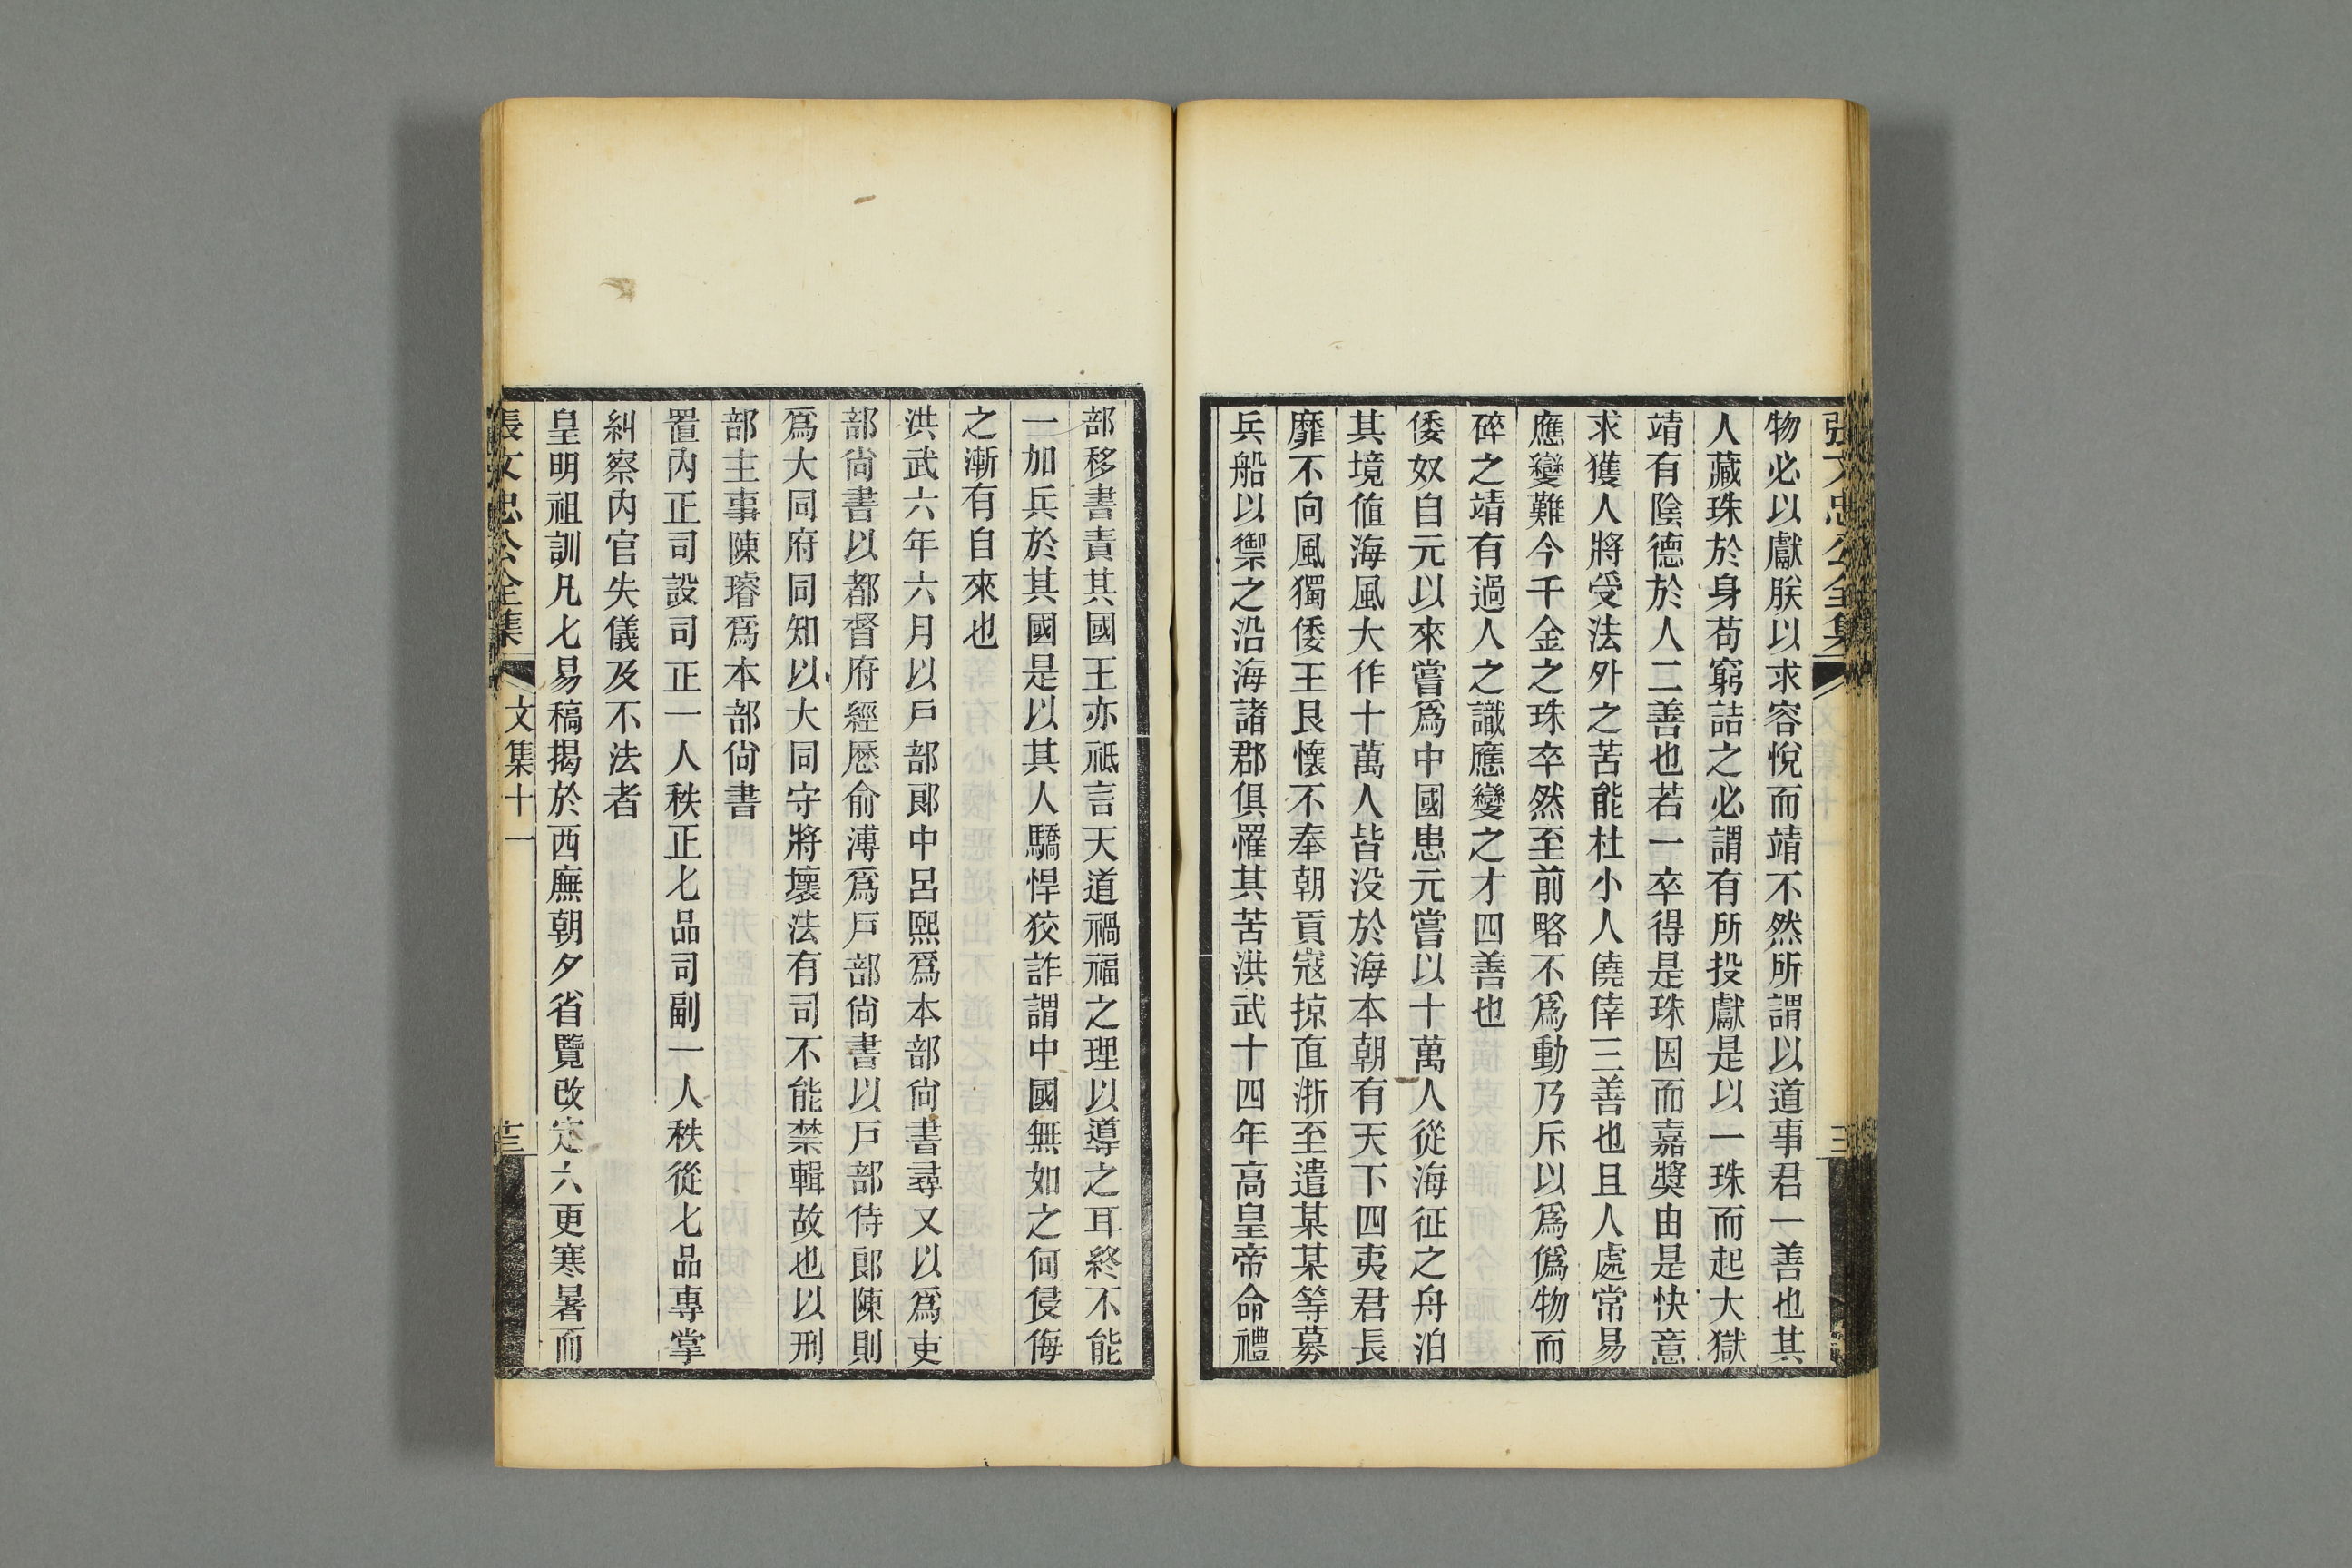 張文忠公全集
物必以獻朕以求容悅而靖不然所謂以道事君一善也其
人藏珠於身苟窮詰之必謂有所投獻是以一珠而起大獄
靖有陰德於人二善也若一卒得是珠因而嘉奬由是快意
求獲人將受法外之苦能杜小人僥倖三善也且人處常易
應變難今千金之珠卒然至前略不爲動乃斥以爲僞物而
碎之靖有過人之識應變之才四善也
倭奴自元以來嘗爲中國患元嘗以十萬人從海征之舟泊
其境値海風大作十萬人皆没於海本朝有天下四夷君長
靡不向風獨倭王良懷不奉朝貢寇掠直浙至遣某某等募
兵船以禦之沿海諸郡俱罹其苦洪武十四年高皇帝命禮
部移書責其國王亦祗言天道禍福之理以導之耳終不能
一加兵於其國是以其人驕悍狡詐謂中國無如之何侵侮
之漸有自來也
洪武六年六月以戶部郎中呂熙爲本部尙書尋又以爲吏
部尙書以都督府經歷俞溥爲戶部尙書以戶部侍郞陳則
爲大同府同知以大同守將壞法有司不能禁輯故也以刑
部主事陳璿爲本部尙書
置內正司設司正一人秩正七品司副一人秩從七品專掌
糾察內官失儀及不法者
皇明祖訓凡七易稿揭於西廡朝夕省覽改定六更寒暑而
張文忠公全集
文集十一